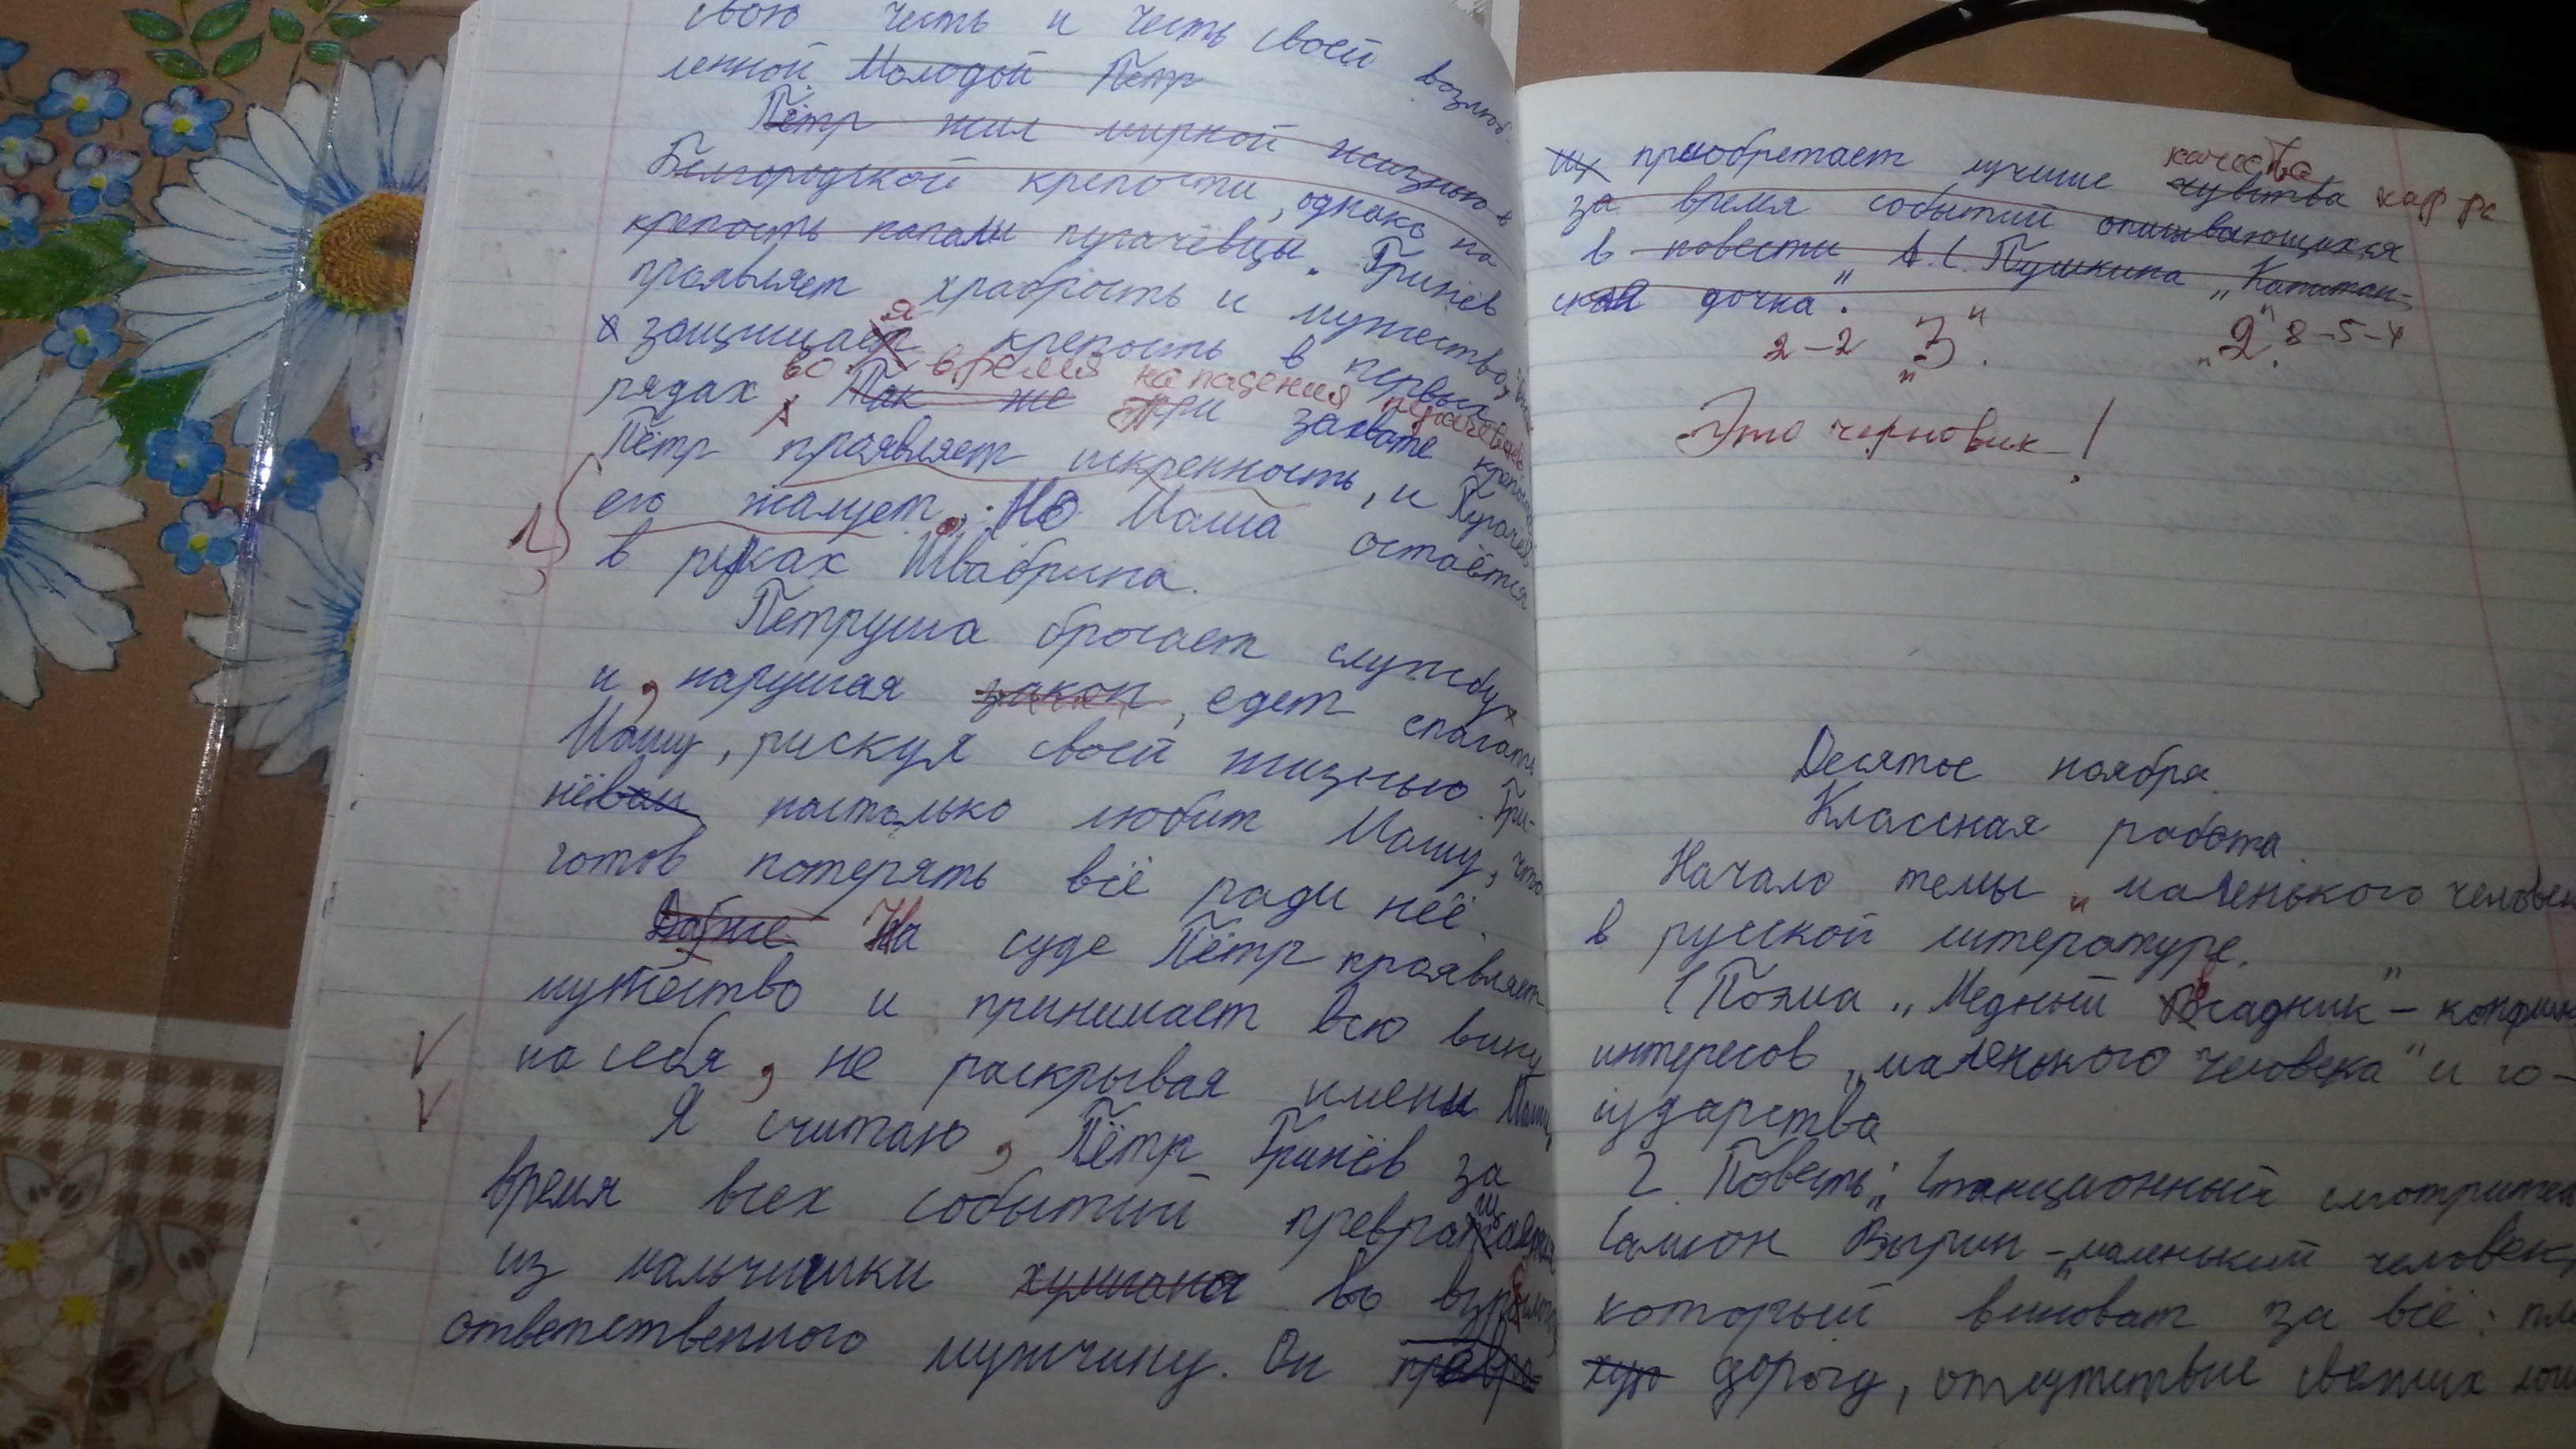 свою честь и честь своей возлюб
ленной. Молодой Пётр
Пётр жил мирной жизнью в
Белгородской крепости, однако на
крепость напали пугачёвцы. Гринёв
проявляет храбрость и мужество,
я
защищает крепость в первых
во время нападения пугачёвцев
рядах. Так же при захвате крепости
Пётр проявляет искренность, и Пугачёв
его жалует. Но Маша остаётся
в руках Швабрина.
Петруша бросает службу
и, нарушая закон, едет спасать
Машу, рискуя своей жизнью. Гри-
нёв настолько любит Машу, что
готов потерять всё ради неё.
На суде Пётр проявляет
мужество и принимает всю вину
на себя, не раскрывая имени Маши,
Я считаю, Пётр Гринёв за
время всех событий
из мальчишки хулигана во взрослого,
ответственного мужчину. Он превра-
их приобретает лучшие качества чувства
за время событий описывающихся
в повести А.С. Пушкина „Капитан-
ская дочка".
2-2 „3". „2". 8-5-4
Это черновик!
Десятое ноября.
Классная работа.
Начало темы „маленького челове
в русской литературе.
1 Поэма „Медный всадник" - конфли
интересов „маленького человека" и го-
сударства
2. Повесть „Станционный смотрите
Самсон Вырин - „маленький человек,
который виноват за всё: пло
хую дорогу, отсутствие свежих лош